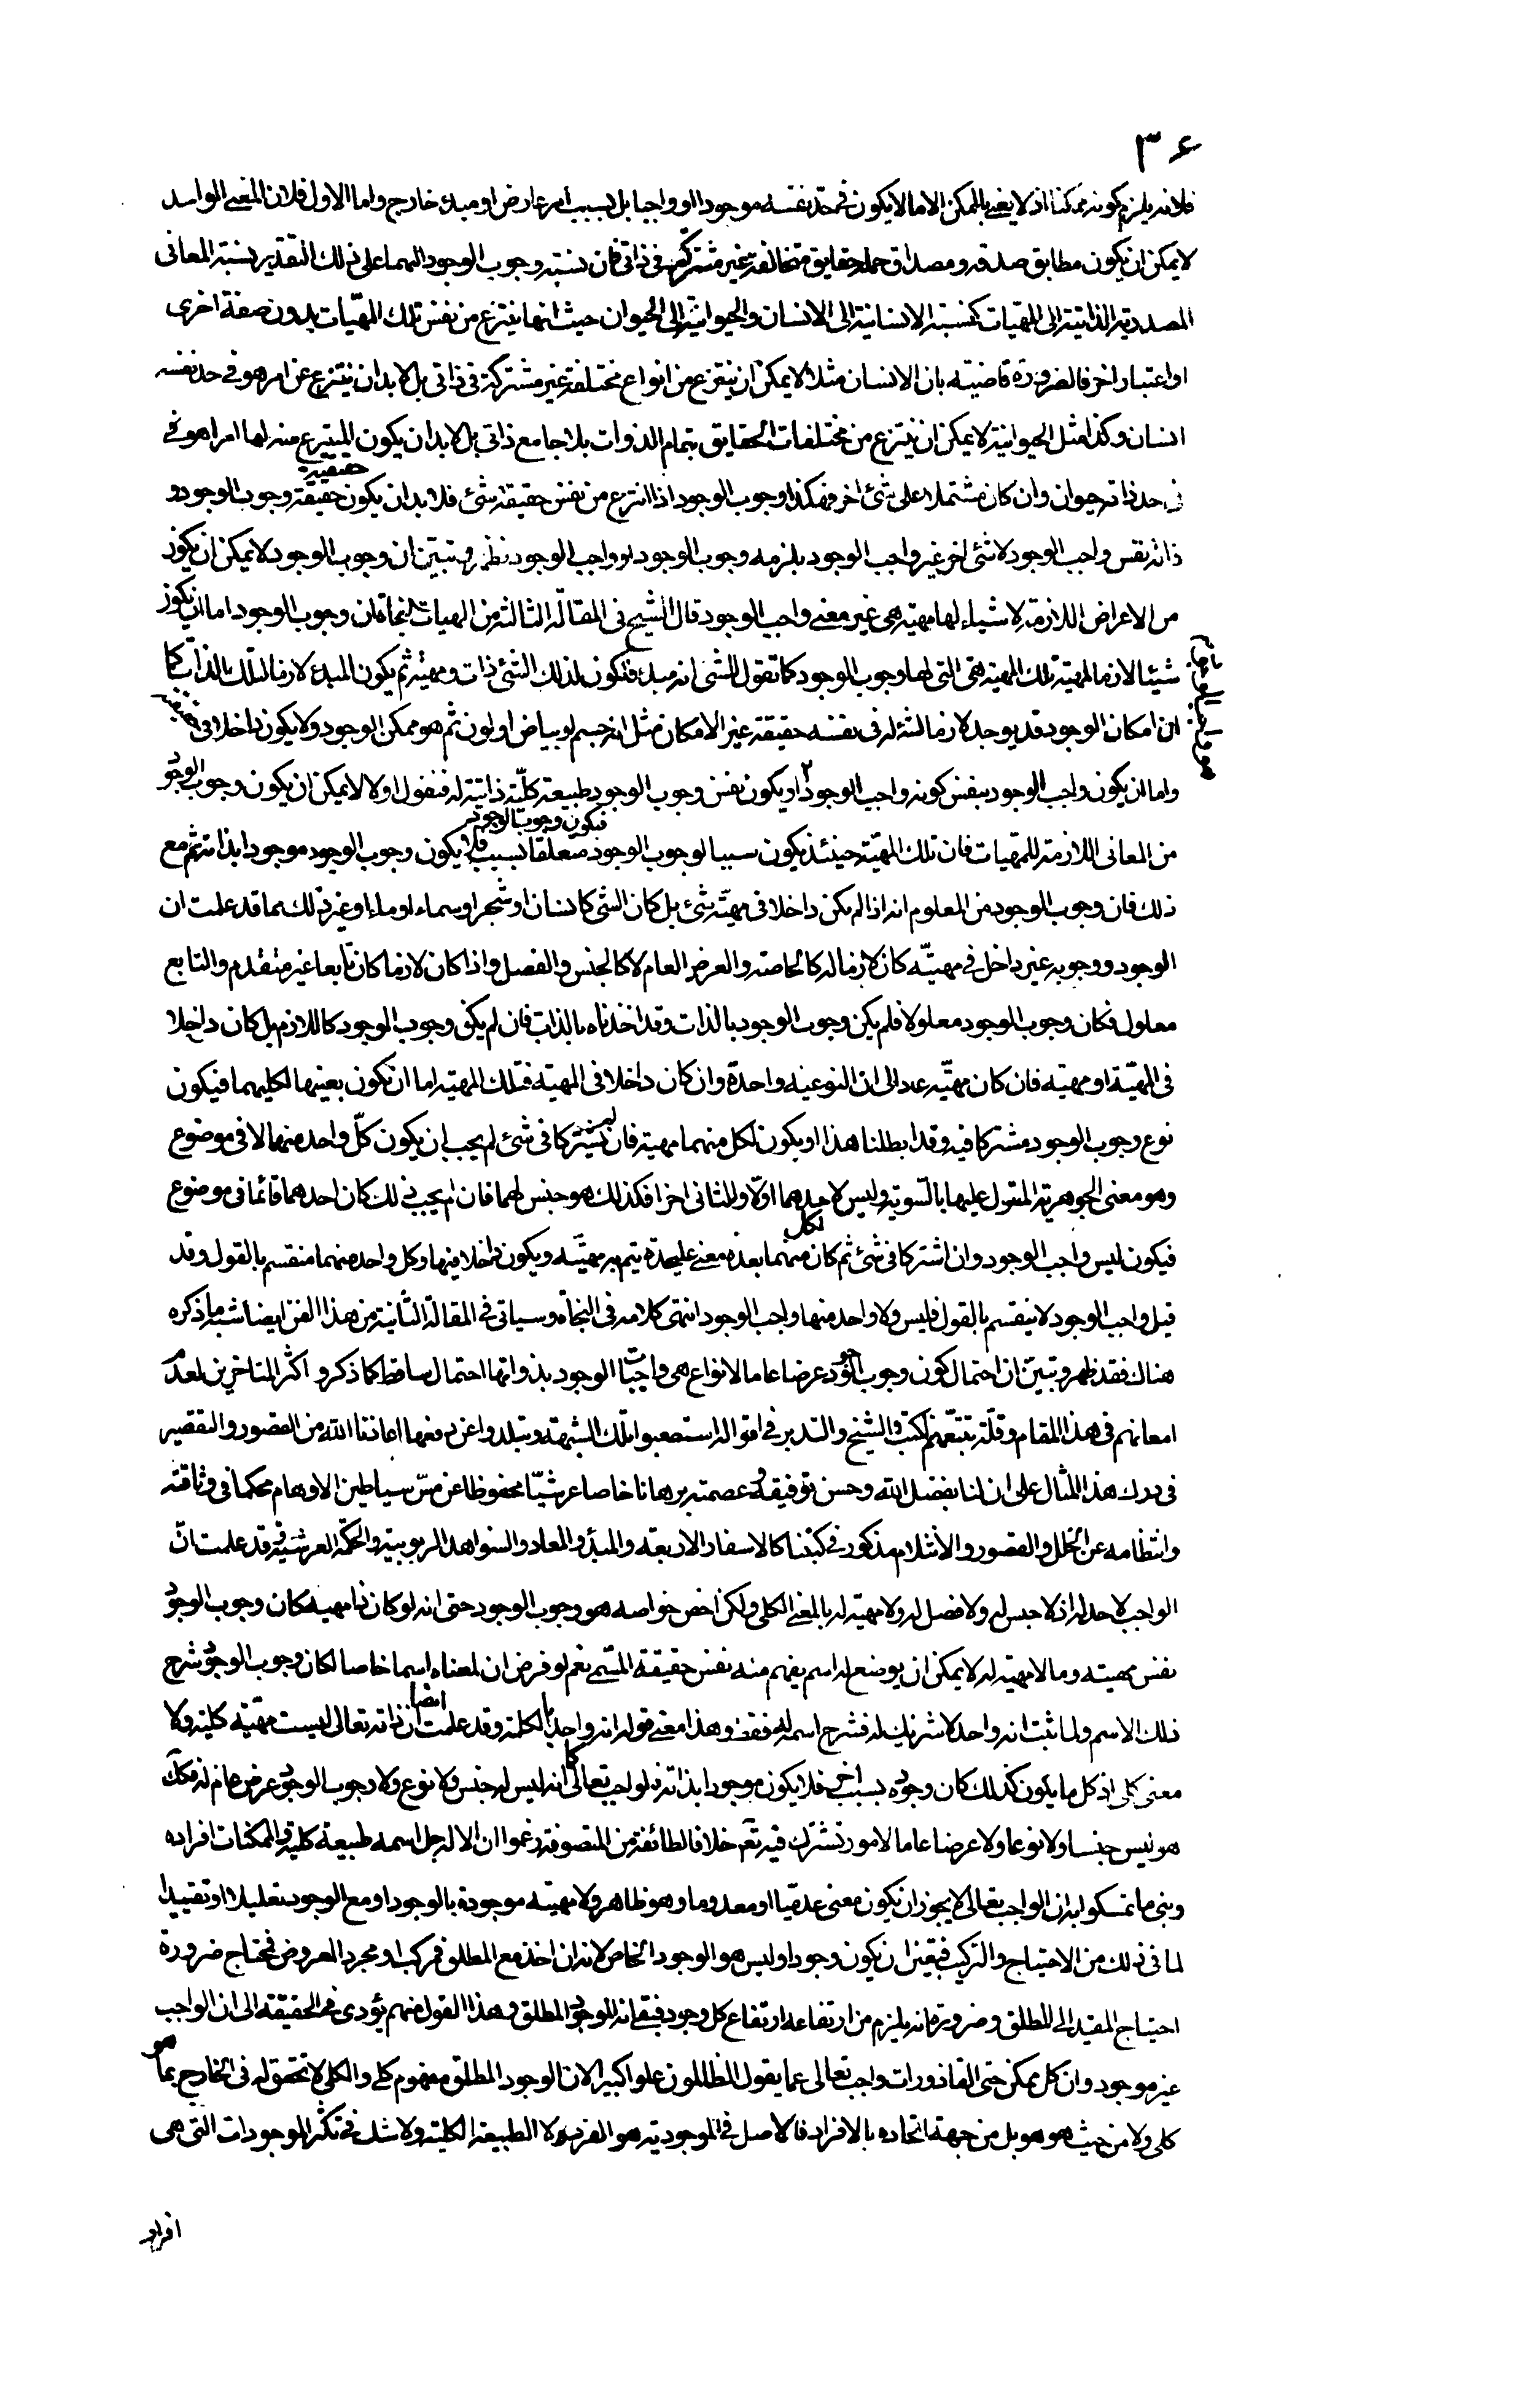 ٣٦
فلانه يلزم كونه ممكنا اذ لا يعنى بالممكن الا ما لا يكون فى حدّ نفسه موجودا او واجبا بل بسبب امر عارض او مبدء خارج واما الاول فلان المعنى الواحد
لا يمكن ان يكون مطابق صدقه ومصداق حمله حقايق متخالفة غير مشتركة فى ذاتى فان نسبة وجوب الوجود اليهما على ذلك التقدير نسبة المعانى
المصدرية الذاتية الى المهيّات كنسبة الانسانية الى الانسان والحيوانية الى الحيوان حيث انها ينتزع من نفس تلك المهيّات بدون صفة اخرى
او اعتبار اخر فالضرورة قاضيته بان الانسان مثلا لا يمكن ان ينتزع من انواع مختلفة غير مشتركة فى ذاتى بل لا بد ان ينتزع عن امر هو فى حد نفسه
انسان وكذا مثل الحيوانية لا يمكن ان ينتزع من مختلفات الحقايق بتمام الذوات بلا جامع ذاتى بل لا بد ان يكون المنتزع منه لها امرا هو فى
فى حد ذاته حيوان وان كان مشتملا على شئ اخر فهكذا وجوب الوجود اذا انتزع من نفس حقيقة شئ فلا بد ان يكون حقيقته حقيقة وجوب الوجود و
ذاته نفس واجب الوجود لا شئ اخر غير واجب الوجود يلزمه وجوب الوجود او واجب الوجود فظهر وتبيّن ان وجوب الوجود لا يمكن ان يكون
من الاعراض اللازمة لاشياء لها مهية هى غير معنى واجب الوجود قال الشيخ فى المقالة الثالثة من الهيات النجاة فان وجوب الوجود اما ان يكون
شيئا لازما لمهيّة تلك المهية هى التى لها وجوب الوجود كما تقول للشئ انه مبدء فتكون لذلك الشئ ذات ومهيّة ثم يكون المبدء لازما لتلك الذات كما
ان امكان الوجود قد يوجد لازما لشئ له فى نفسه حقيقة غير الامكان مثل انه جسم او بياض او لون ثم هو ممكن الوجود ولا يكون داخلا فى حقيقته
واما ان يكون واجب الوجود بنفس كونه واجب الوجود او يكون نفس وجوب الوجود طبيعة كلّية ذاتية له فنقول اولا لا يمكن ان يكون وجوب الوجود
من المعانى اللازمة للمهيات فان تلك المهيّة حينئذ يكون سببا لوجوب الوجود فيكون وجوب الوجود متعلقا بسبب فلا يكون وجوب الوجود موجودا بذاته ثم مع
ذلك فان وجوب الوجود من المعلوم انه اذا لم يكن داخلا فى مهيّة شئ بل كان الشئ كانسان او شجر او سماء او ماء او غير ذلك مما قد علمت ان
الوجود ووجوبه غير داخل فى مهيتّه كان لازما له كالخاصة والعرض العام لا كالجنس والفصل واذا كان لازما كان تابعا غير متقدم والتابع
معلول فكان وجوب الوجود معلولا فلم يكن وجوب الوجود بالذات وقد اخذناه بالذات فان لم يكن وجوب الوجود كاللازم بل كان داخلا
فى المهيّة او مهيته فان كان مهيّة عاد الى ان النوعية واحدة وان كان داخلا فى المهية فتلك المهية اما ان تكون بعينها لكليهما فيكون
نوع وجوب الوجود مشتركا فيه وقد ابطلنا هذا او يكون لكل منهما مهية فان لم يشتركا فى شئ لم يجب ان يكون كلّ واحد منهما لا فى موضوع
وهو معنى الجوهرية المقول عليها بالسّوية وليس لاحدهما اولا وللثانى اخرا فكذلك هو جنس لهما فان لم يجب ذلك كان احدهما قائما فى موضوع
فيكون ليس واجب الوجود وان اشتركا فى شئ ثم كان لكل منهما بعده معنى عليحدة يتم به مهيّته ويكون داخلا فيها وكل واحد منهما منقسم بالقول وقد
قيل واجب الوجود لا ينقسم بالقول فليس ولا واحد منها واجب الوجود انتهى كلامه فى النجاة وسياتى فى المقالة الثانية من هذا الفن ايضا شبه ما ذكره
هناك فقد ظهر وتبيّن ان احتمال كون وجوب الوجود عرضا عاما لانواع هى واجبات الوجود بذواتها احتمال ساقط كما ذكر و اكثر المتاخرين لعدم
امعانهم فى هذا المقام وقلّة تتبّعهم لكتب الشيخ والتدبر فى اقواله استصعبوا تلك الشبهة وتبلدوا عن دفعها اعاذنا الله من القصور والتقصير
فى درك هذا المثال على ان لنا بفضل الله وحسن توفيقه وعصمته برهانا خاصا عرشيّا محفوظا عن مسّ شياطين الاوهام محكما فى وثاقته
وانتظامه عن الخلل والقصور والانثلام مذكور فى كتبنا كالاسفار الاربعة والمبدأ والمعاد والشواهد الربوبية والحكمة العرشية قوله قد علمت انّ
الواجب لا حد له اذ لا جنس له ولا فصل له ولا مهيّة له بالمعنى الكلى ولكن اخص خواصه هو وجوب الوجود حتى انه لو كان ذا مهية كان وجوب الوجود
نفس مهيته وما لا مهية له لا يمكن ان يوضع له اسم يفهم منه نفس حقيقة المسّمى نعم لو فرض ان لمعناه اسما خاصا لكان وجوب الوجود شرح
ذلك الاسم ولما ثبت انه واحد لا شريك له فشرح اسمه له فقط وهذا معنى قوله انه واحد بالكلمة وقد علمت ايضا ان ذاته تعالى ليست مهيّة كلية ولا
معنى كلى اذ كل ما يكون كذلك كان وجوده بسبب اخر فلا يكون موجودا بذاته فالواجب تعالى كما انه ليس له جنس ولا نوع ولا وجوب الوجود عرض عام له فكك
هو ليس جنسا ولا نوعا ولا عرضا عاما لامور تشترك فيه تعم خلافا لطائفة من المتصوفة زعموا ان الاله جل اسمه طبيعة كلية والممكنات افراده
وبنى ما تمسكوا به ان الواجب تعالى لا يجوز ان يكون معنى عدميّا او معدوما وهو ظاهر ولا مهيته موجودة بالوجود او مع الوجود تعليلا او تقييدا
لما فى ذلك من الاحتياج والتركيب فتعين ان يكون وجودا وليس هو الوجود الخاص لانه ان اخذ مع المطلق فمركب او مجرد المعروض فمحتاج ضرورة
احتياج المقيد الى المطلق وضرورة انه يلزم من ارتفاعه ارتفاع كل وجود فبقى انه الوجود المطلق وهذا القول منهم يؤدى فى الحقيقة الى ان الواجب
غير موجود وان كل ممكن حتى القاذورات واجب تعالى عما يقول الظالمون علوا كبيرا لان الوجود المطلق مفهوم كلى والكلى لا تحقق له فى الخارج بما هو
كلى ولا من حيث هو هو بل من جهة اتحاده بالافراد فالاصل فى الموجودية هو الفرد لا الطبيعة الكلية ولا شك فى تكثّر الموجودات التى هى
افراد